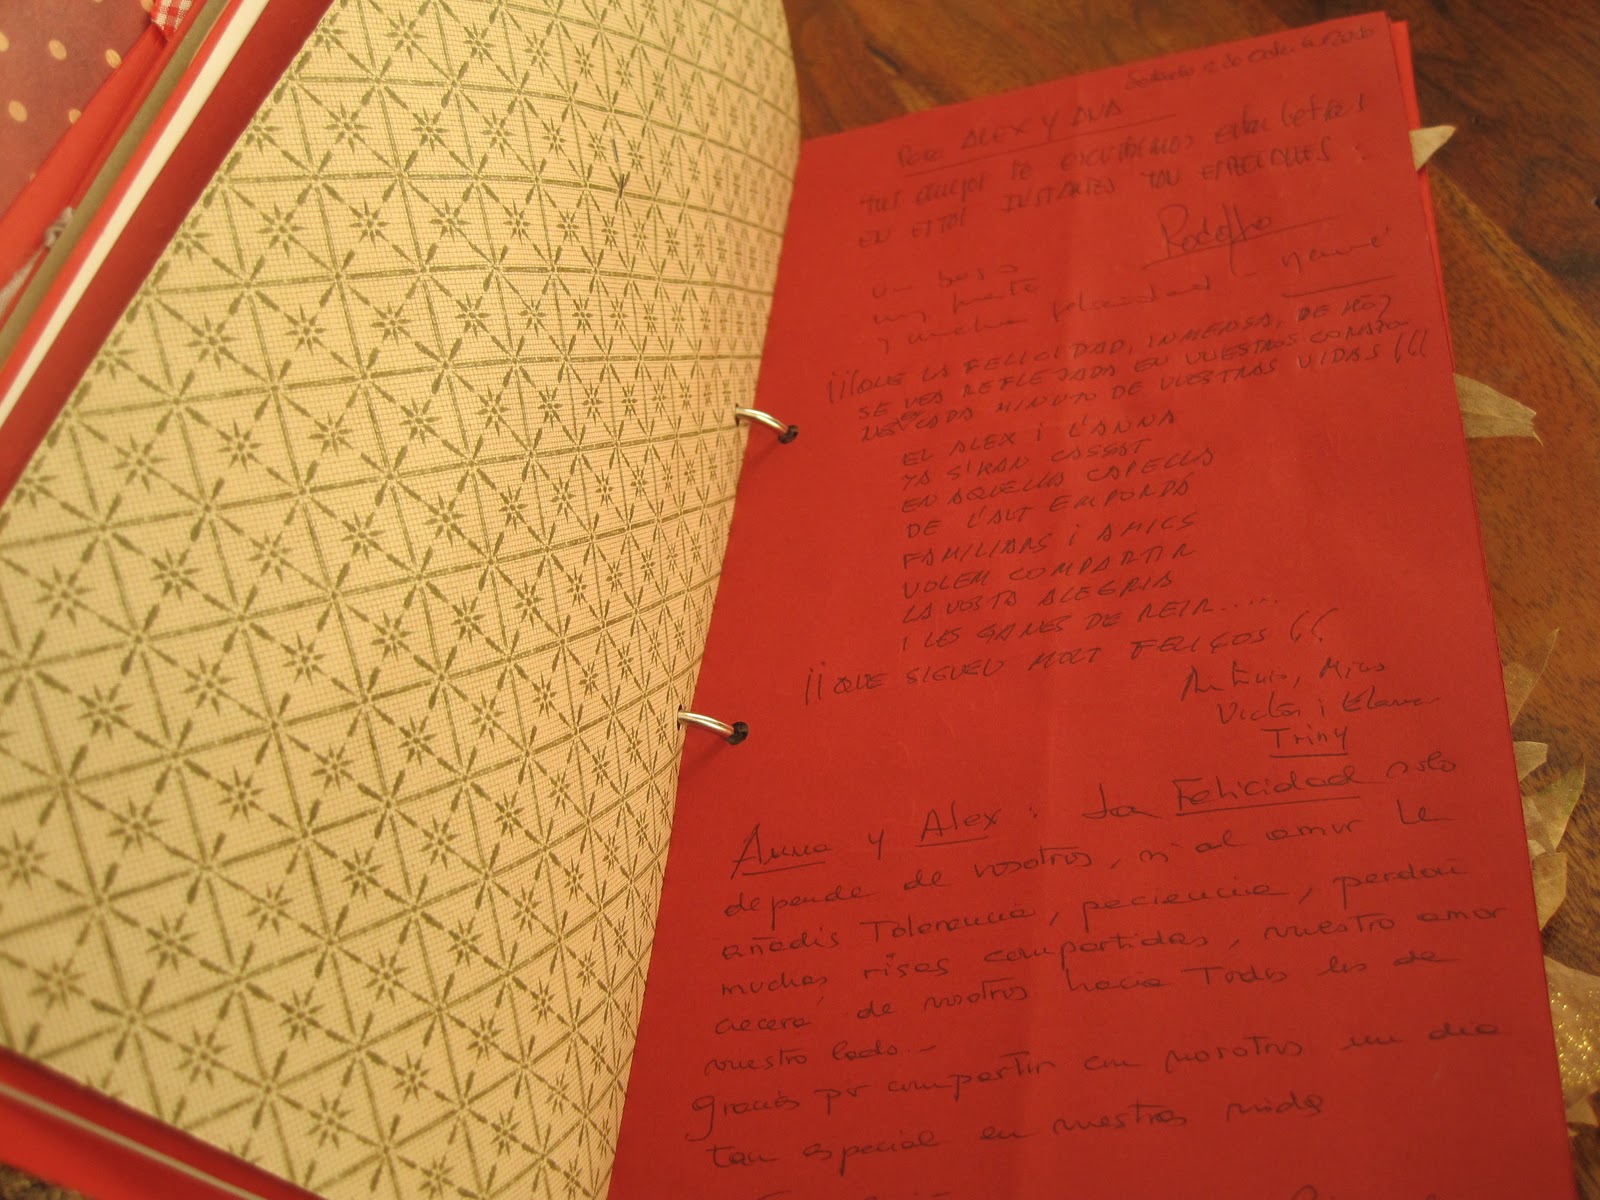 Sábado 2 de Octubre 2010
Para ALEX Y ANA
EN ESTOS INSTANTES TAN ESPECIALES.
Rodolfo
Un beso
muy fuerte
y mucha felicidad
¡¡¡QUE LA FELICIDAD, INMENSA, DE HOY
SE VEA REFLEJADA EN VUESTROS CORAZO
NES CADA MINUTO DE VUESTRAS VIDAS!!!
EL ALEX I L'ANNA
JA S'HAN CASSAT
EN AQUELLA CAPELLA
DE L'ALT EMPORDÀ
FAMILIARS I AMICS
VOLEM COMPARTIR
LA VOSTA ALEGRIA
I LES GANES DE REIR.....
¡¡QUE SIGUEU MOLT FELIÇOS!!
Víctor i
Triny
Anna y Alex: La Felicidad solo
depende de vosotros, si al amor le
añadís Tolerancia, paciencia, perdón
muchas risas compartidas, vuestro amor
crecerá de vosotros hacia Todos los de
vuestro lado.-
Gracias por compartir con nosotros un día
tan especial en vuestras vidas